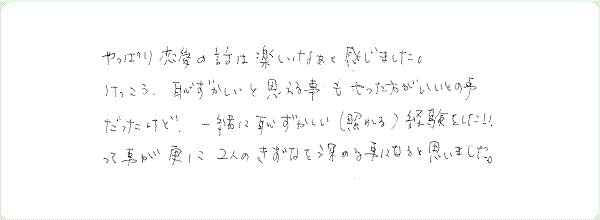 やっぱり恋愛の話は楽しいなぁと感じました。
けっこう、恥ずかしいと思える事もやった方がいいとの事
だったけど、一緒に恥ずかしい(照れる)経験をした!!
って事が更に2人のきずなを深める事になると思いました。